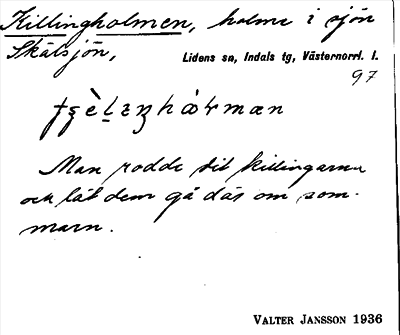 Killingholmen, holme i sjön
Skälsjön,
Lidens sn, Indals tg, Västernorrl. l.
97
Man rodde dit killingarna
och lät dem gå där om som-
marn.
VALTER JANSSON 1936